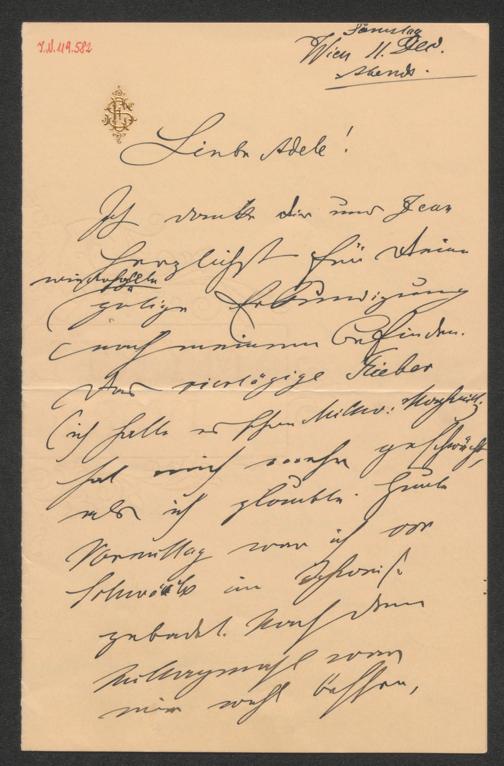 I.N. 119.582
Samstag
Wien 11. Dec.
Abends.
Liebe Adele!
Ich danke dir und Jean
herzlichst für Deine
wiederholte
gütige Erkundigung
nach meinem Befinden.
Das viertägige Fieber
(ich hatte es schon Mittw: Nachmitt:
hat mich mehr geschwächt,
als ich glaubte. Heute
Vormittag war ich vor
Schwäche im Schweiß
gebadet. Nach dem
Mittagmahl war
mir wohl besser,